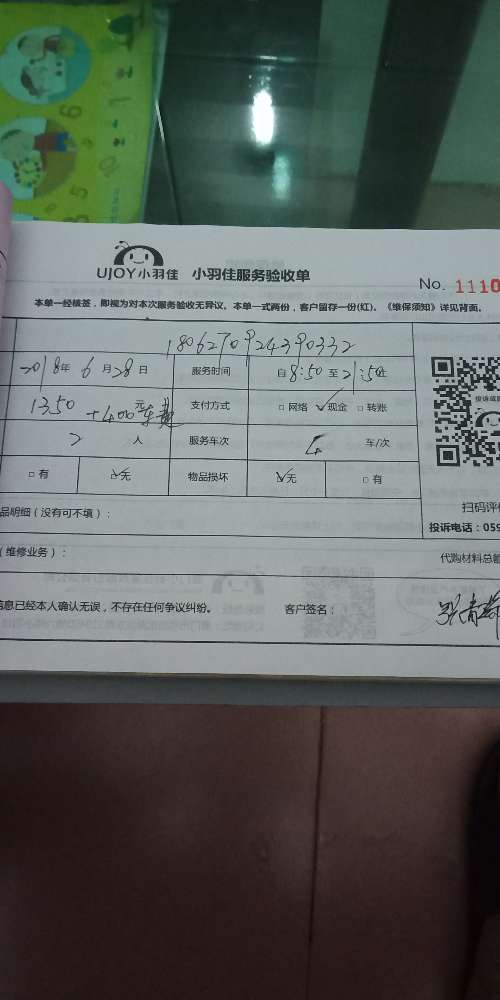 UJOY小羽佳 小羽佳服务验收单
No. 1110
本单一经核签，即视为对本次服务验收无异议。本单一式两份，客户留存一份(红)。《维保须知》详见背面。
1806270924390332
2018年6月28日 服务时间 自8:50至21:50止
1350元+400车费 支付方式 □网络 ☑现金 □转账
2人 服务车次 车/次
□有 ☑无 物品损坏 ☑无 □有
品明细（没有可不填）：
扫码评价
投诉电话：059
（维修业务）：
代购材料总额
信息已经本人确认无误，不存在任何争议纠纷。 客户签名：